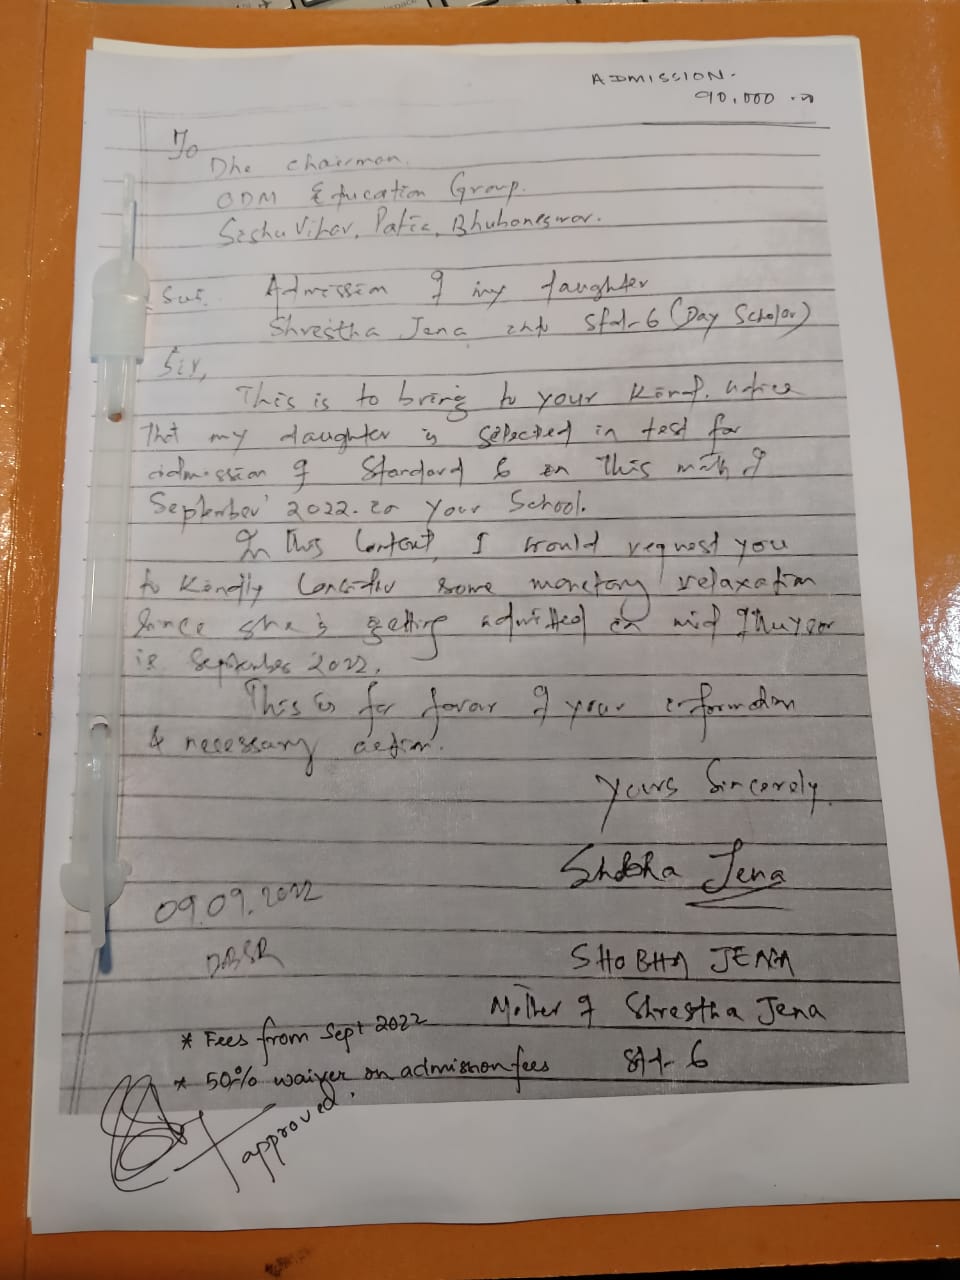 ADMISSION -
90,000
To
Dhe chairman.
ODM Education Group.
Seshu Vihar, Patia, Bhubaneswar.
Sub. Admission of my daughter
Shrestha Jena into Std-6 (Day Scholar)
Sir,
This is to bring to your kind notice
That my daughter is selected in test for
admission of Standard 6 in This mnth of
September' 2022. in your School.
In This Context, I would request you
to Kindly Consider some monetary relaxation
Since she is getting admitted in mid of
ie September 2022.
This is for favor of your information
& necessary action.
Yours Sincerely.
Shobha Jena
09.09.2022
BBSR
SHOBHA JENA
Mother of Shrestha Jena
Std-6
* Fees from Sept 2022
* 50% waiver on admission fees
approved.